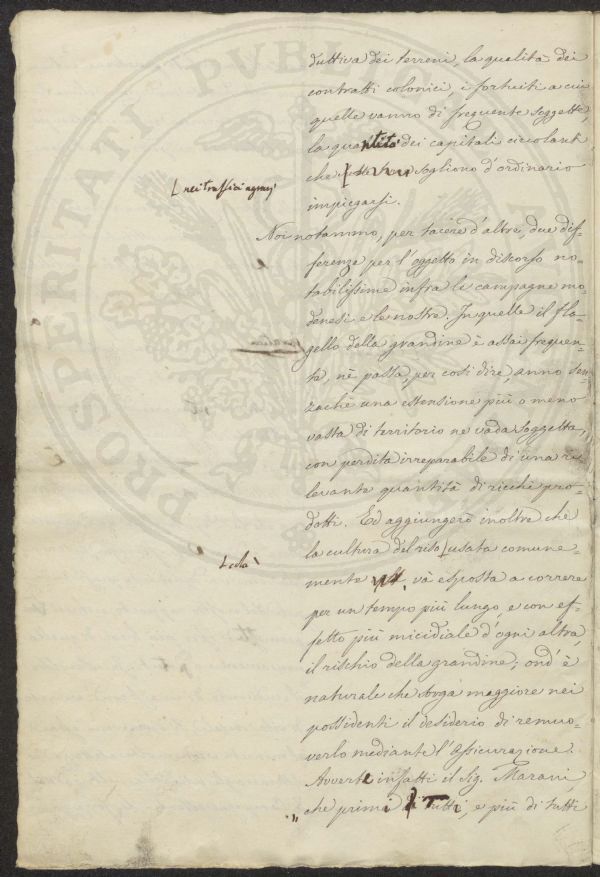 duttiva dei terreni, la qualità dei
contratti colonici, i fortuiti a cui
quelle vanno di frequente soggette,
la quantità dei capitali circolanti
che sogliono d'ordinario
[ nei traffici agrarj
impiegarsi.
Noi notammo, per tacere d'altre, due dif-
ferenze per l'oggetto in discorso no-
tabilissime infra le campagne mo-
denesi e le nostre. In quelle il fla-
gello della grandine è assai frequen-
te, nè passa, per così dire, anno sen-
zachè una estensione più o meno
vasta di territorio ne vada soggetta,
con perdita irreparabile di una ri-
levante quantità di ricchi pro-
dotti. Ed aggiungerò inoltre che
la cultura del riso [ usata comune-
[ colà
mente, và esposta a correre
per un tempo più lungo, e con ef-
fetto più micidiale d'ogni altra,
il rischio della grandine; ond'è
naturale che sorga maggiore nei
possidenti il desiderio di remuo-
verlo mediante l'Assicurazione.
Avverte infatti il Sig. Marani,
che primi di tutti, e più di tutti
PROSPERITATI PVBLICAE